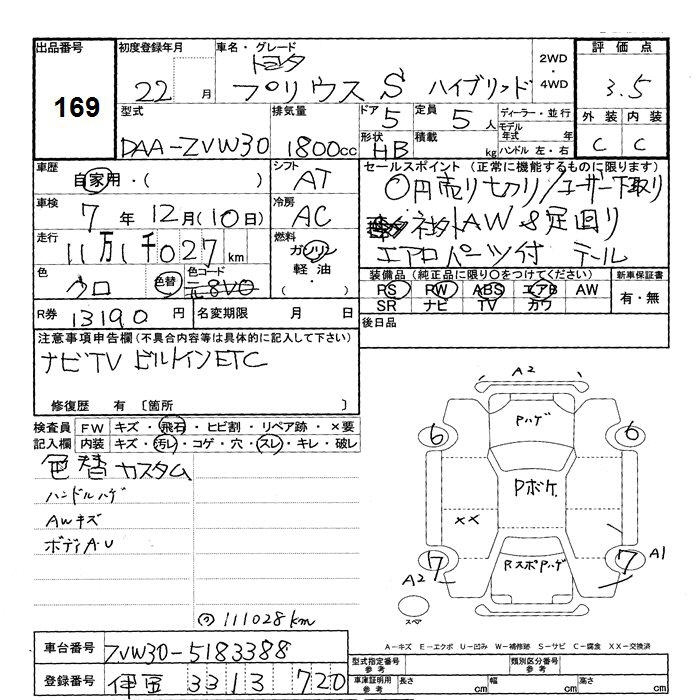 出品番号 初度登録年月 車名・グレード 2WD・4WD 評価点
169 22 月 トヨタ プリウス S ハイブリッド 3.5
型式 排気量 ドア 5 定員 5人 ディーラー・並行 外装 内装
DAA-ZVW30 1800cc 形状 HB 積載 kg モデル年式 年 C C
ハンドル 左・右
車歴 自家用・( ) シフト AT セールスポイント(正常に機能するものに限ります)
0円売り切り/ユーザー下取り
車検 7年 12月(10日) 冷房 AC
AW & 足回り
エアロパーツ付 テール
走行 11万1千027km 燃料 ガソリン・軽油・( )
色 クロ 色替 色コード 元8V0
装備品(純正品に限り○をつけてください) 新車保証書
RS RW ABS エアB AW 有・無
SR ナビ TV カワ
R券 13190円 名変期限 月 日
後日品
注意事項申告欄(不具合内容等は具体的に記入して下さい)
ナビTV ビルトインETC
修復歴 有 〔箇所 〕
検査員記入欄 FW キズ・飛石・ヒビ割・リペア跡・×要
内装 キズ・汚レ・コゲ・穴・スレ・キレ・破レ
色替カスタム
ハンドルハゲ
AWキズ
ボディA・U
111028km
A2
Pハゲ
6 6
Pボケ
XX
7 7 A1
RスポPハゲ
A2
スペア
A-キズ E-エクボ U-凹み W-補修跡 S-サビ C-腐食 XX-交換済
車台番号 ZVW30-5183388 型式指定番号参考 類別区分番号参考
登録番号 伊豆 331 ス 720 車庫証明用参考 長さ cm 幅 cm 高さ cm